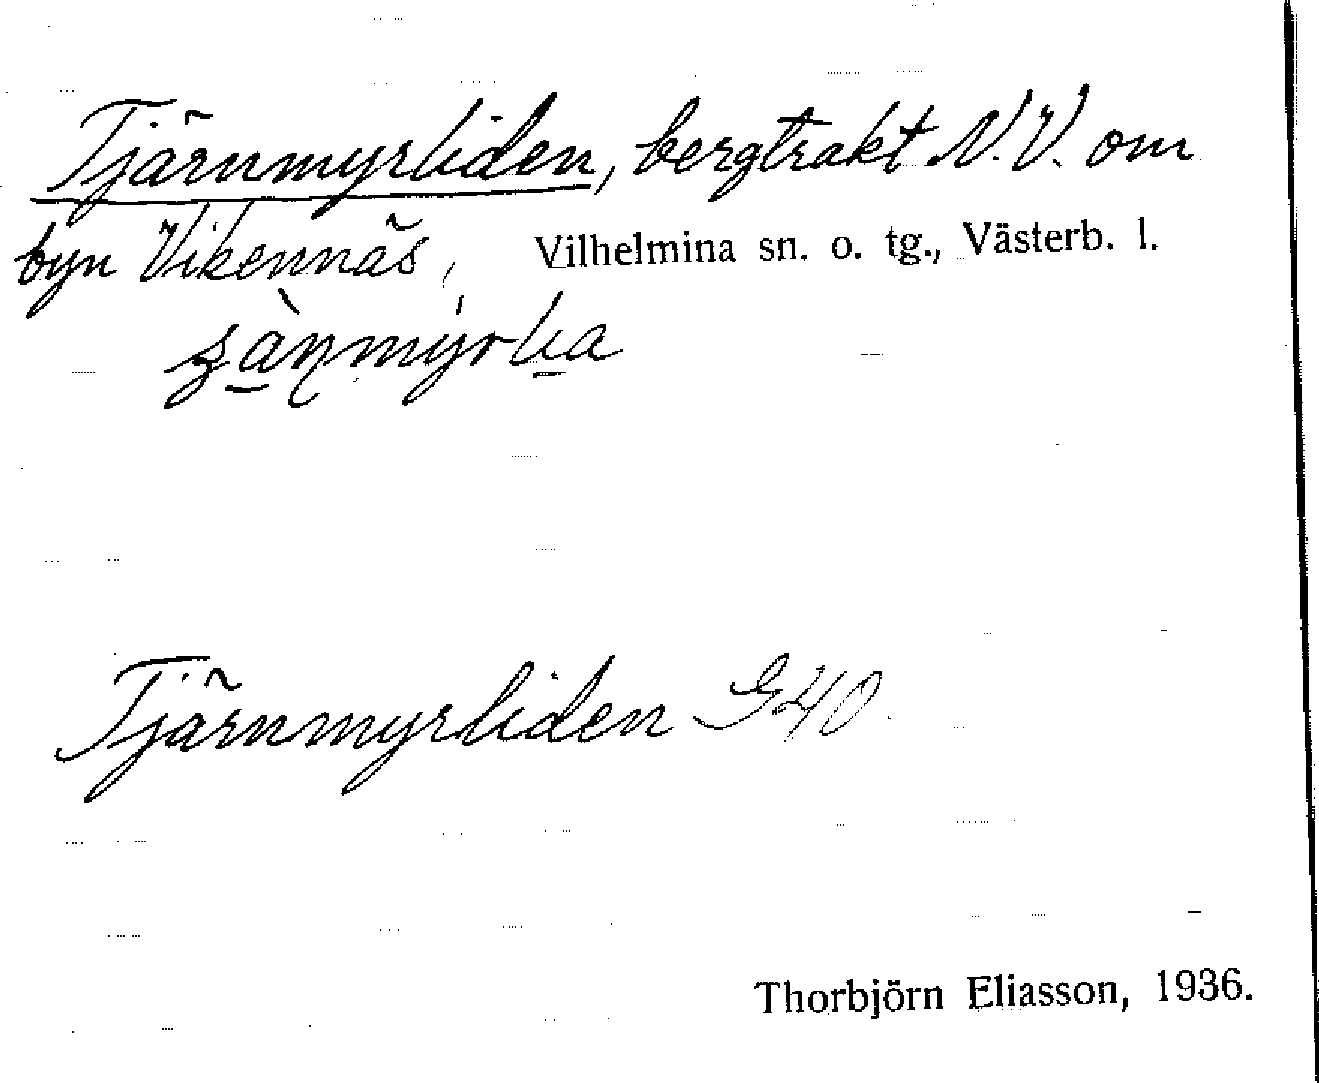 Tjärnmyrliden, bergtrakt N.V. om
byn Vikennäs, Vilhelmina sn. o. tg., Västerb. l.
Tjärnmyrliden G40.
Thorbjörn Eliasson, 1936.